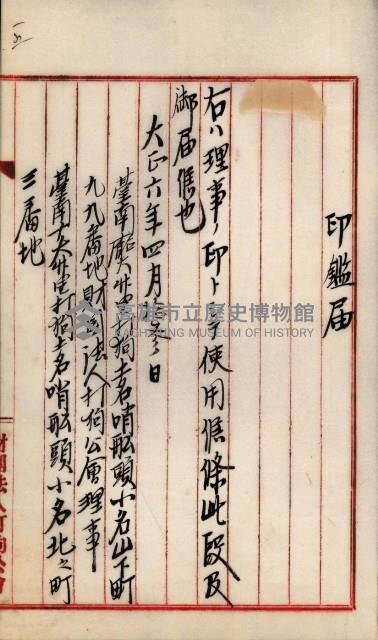 一五
印鑑届
右ハ理事ノ印トシテ使用候條此段及
御届候也
大正六年四月 日
臺南廳大竹里打狗土名哨船頭小名山下町
九九番地財團法人打狗公會理事
臺南廳大竹里打狗土名哨船頭小名北之町
三番地
財團法人打狗公會
高雄市立歷史博物館
KAOHSIUNG MUSEUM OF HISTORY